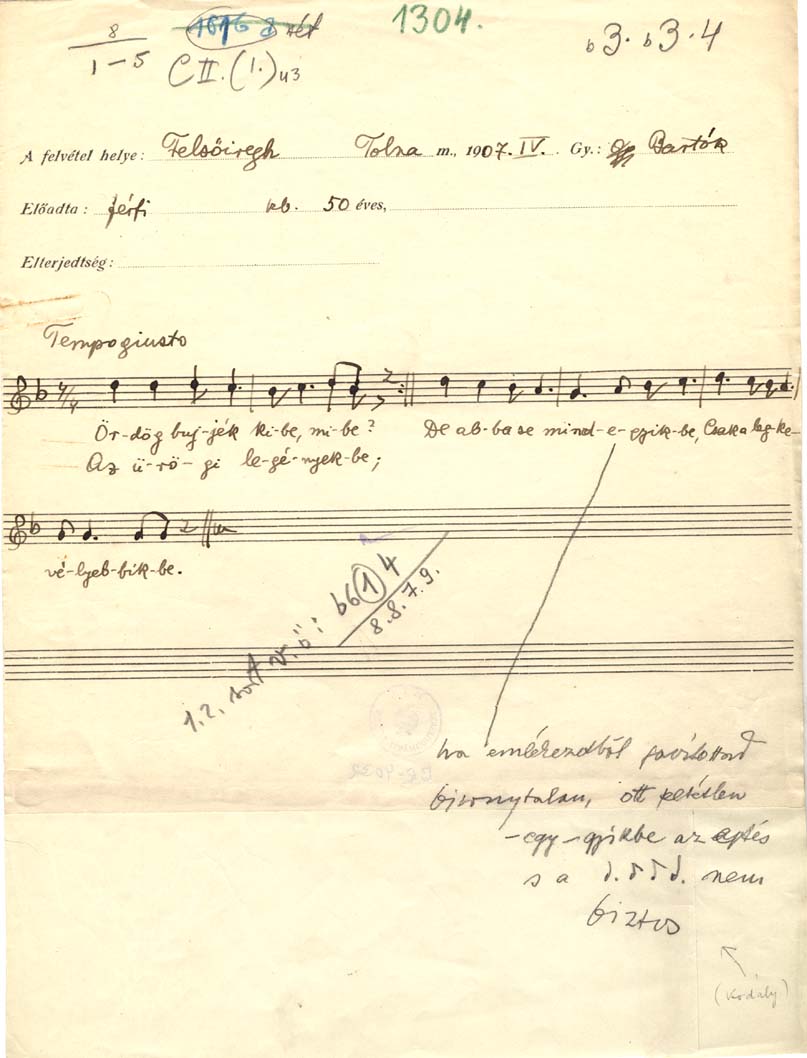 8
1–5
1304.
b3. b3. 4
C II. (1.) u3
A felvétel helye: Felsőiregh Tolna m., 1907. IV. Gy.: Bartók
Előadta: férfi kb. 50 éves,
Elterjedtség:
Tempo giusto
Ör-dög buj-jék ki-be, mi-be? De ab-ba se mind-e-gyik-be, Csak a leg-ke-
Az ü-rö-gi le-gé-nyek-be;
vé-lyeb-bik-be.
1. 2. sort v. ö.: b6 1 4
8. 8. 7. 9.
ha emlékezetből javítottad
bizonytalan, ott kétségtelen
-egy-gyikbe az ejtés
s a nem
biztos
(Kodály)